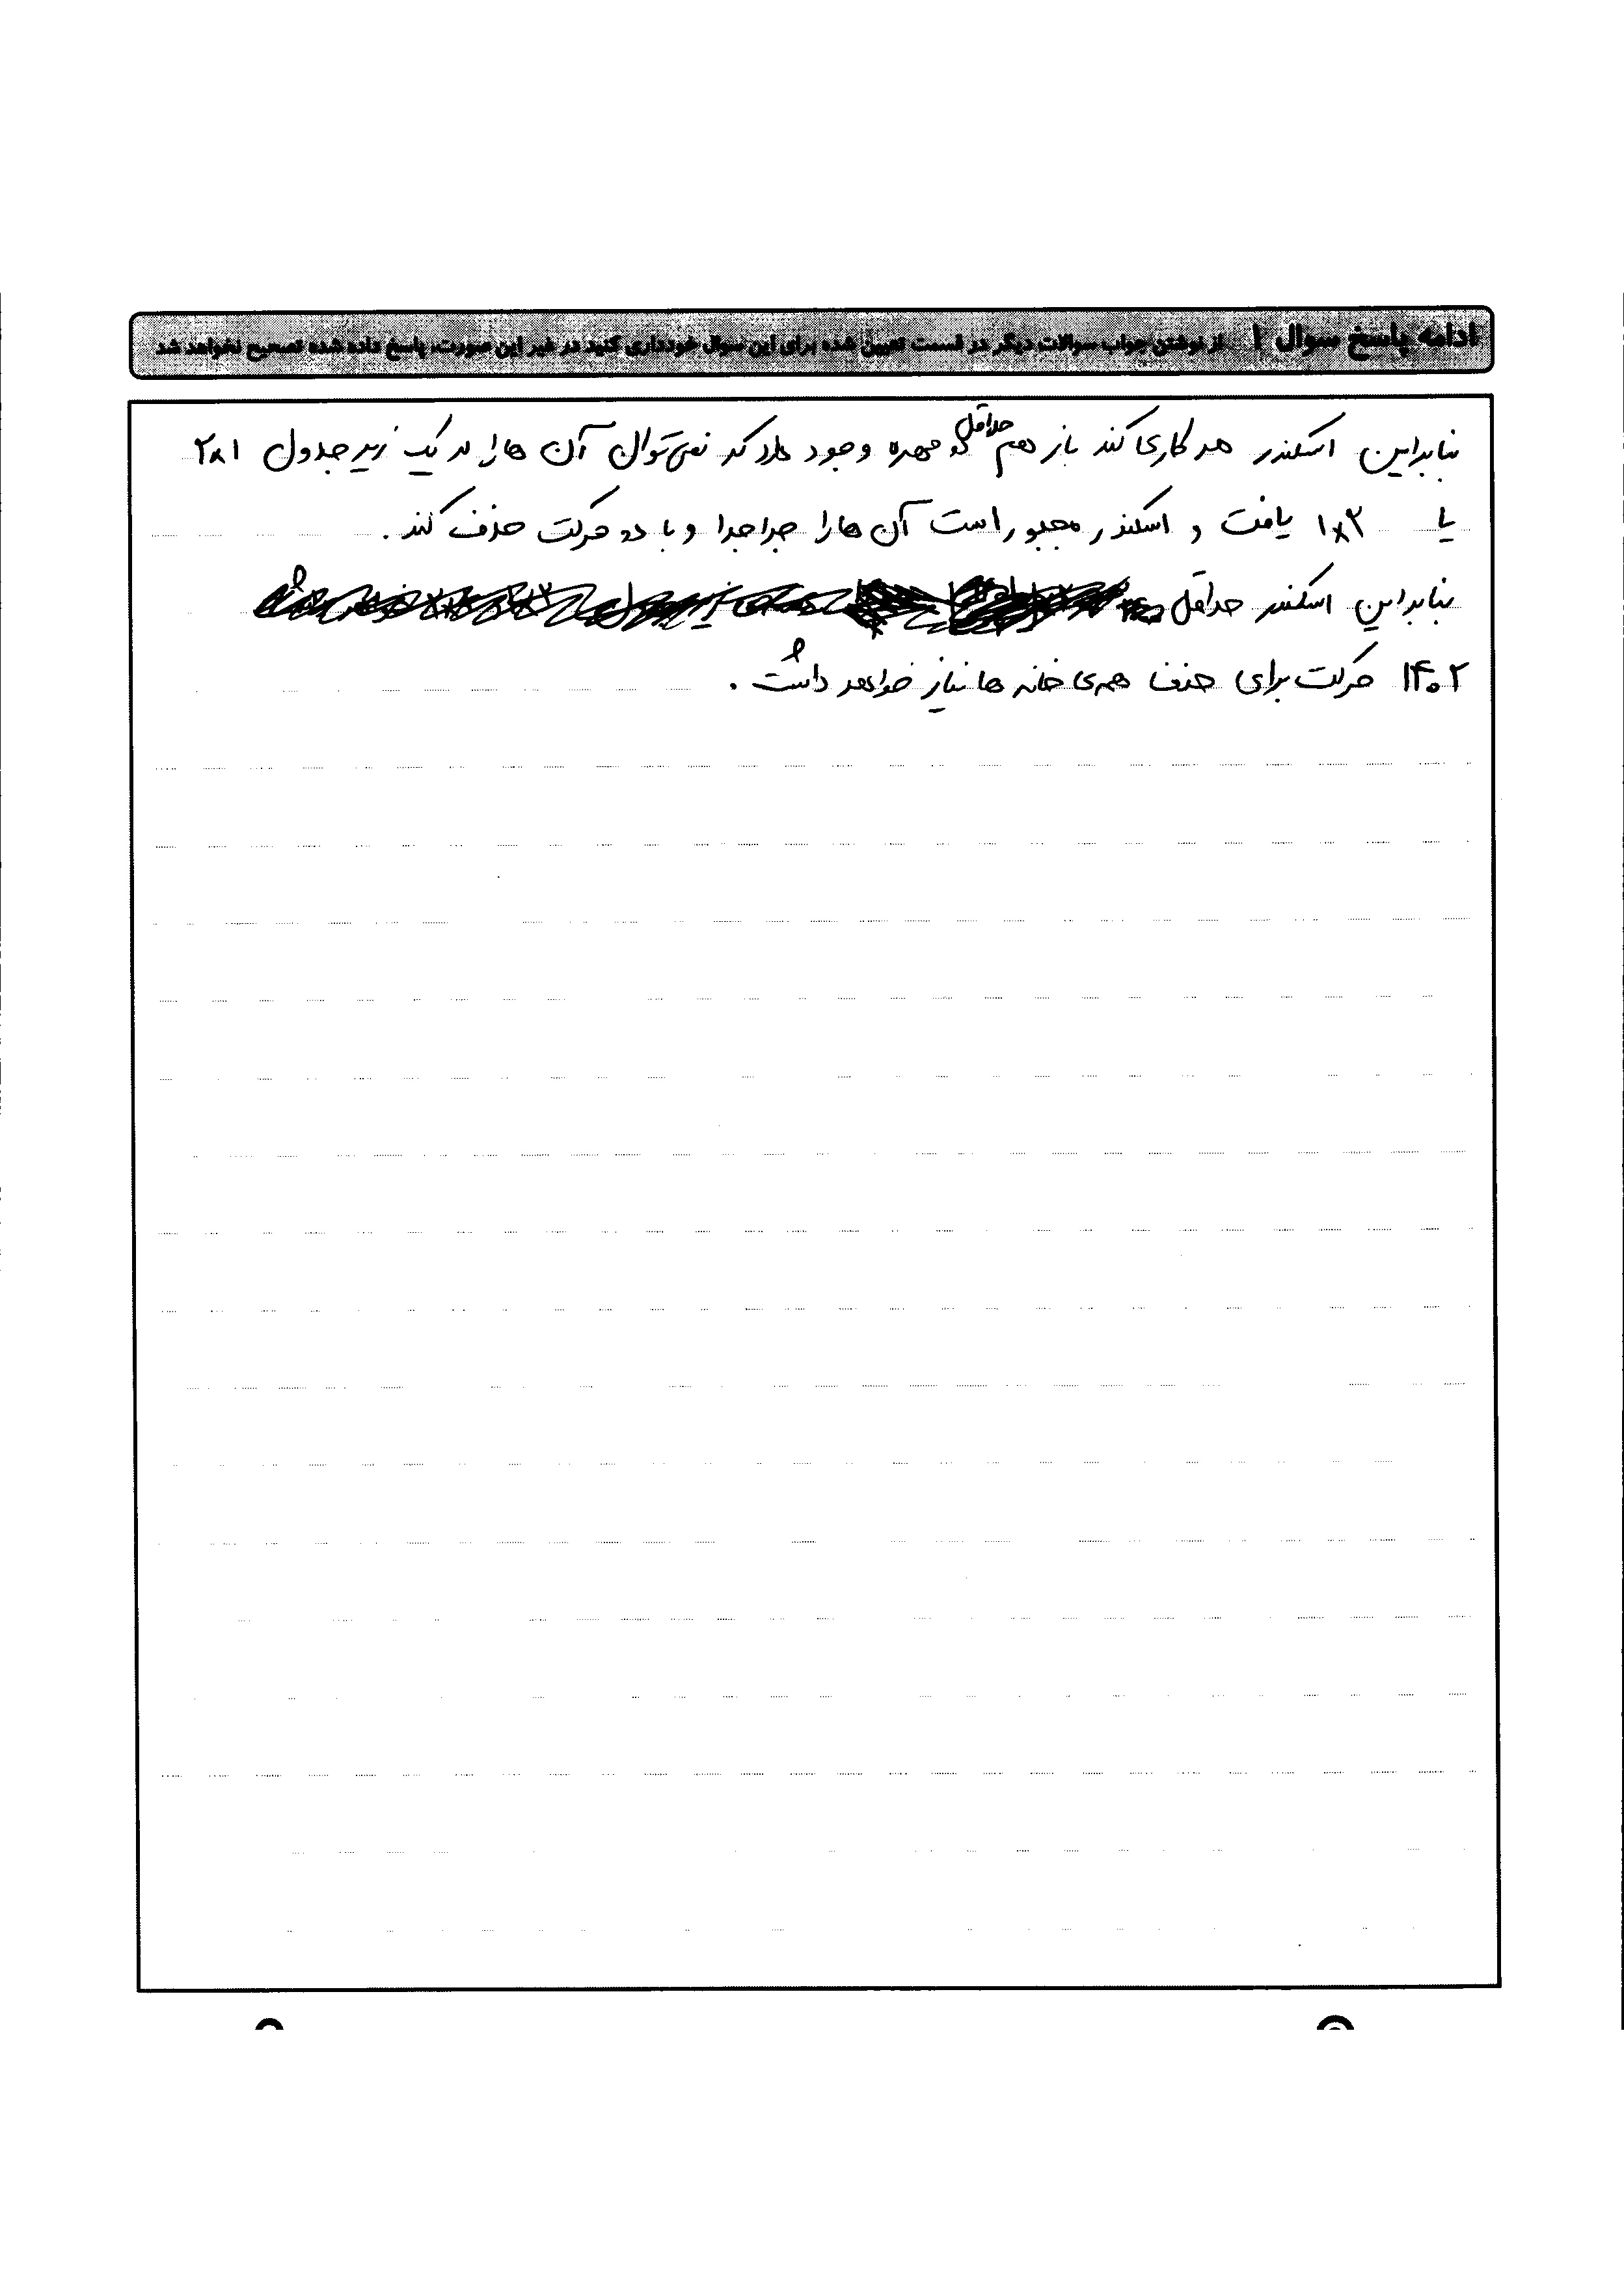 ادامه پاسخ سوال ۱ از نوشتن جواب سوالات دیگر در قسمت تعیین شده برای این سوال خودداری کنید در غیر این صورت، پاسخ داده شده تصحیح نخواهد شد
بنابراین اسکندر هر کاری کند باز هم حداقل دو مهره وجود دارد که نمی‌توان آن ها را در یک زیر جدول ۲×۱
یا ۱×۲ یافت و اسکندر مجبور است آن ها را جدا جدا و با دو حرکت حذف کند.
بنابراین اسکندر حداقل
۱۴۰۲ حرکت برای حذف همه‌ی خانه ها نیاز خواهد داشت.